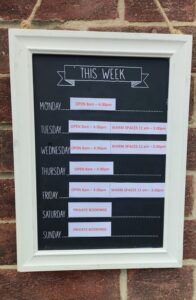 THIS WEEK
MONDAY OPEN 8am - 4:30pm
TUESDAY OPEN 8am - 4:30pm WARM SPACES 11am - 3:00pm
WEDNESDAY OPEN 8am - 4:30pm WARM SPACES 11am - 3:00pm
THURSDAY OPEN 8am - 4:30pm
FRIDAY OPEN 8am - 4:30pm WARM SPACES 11am - 3:00pm
SATURDAY PRIVATE BOOKINGS
SUNDAY PRIVATE BOOKINGS